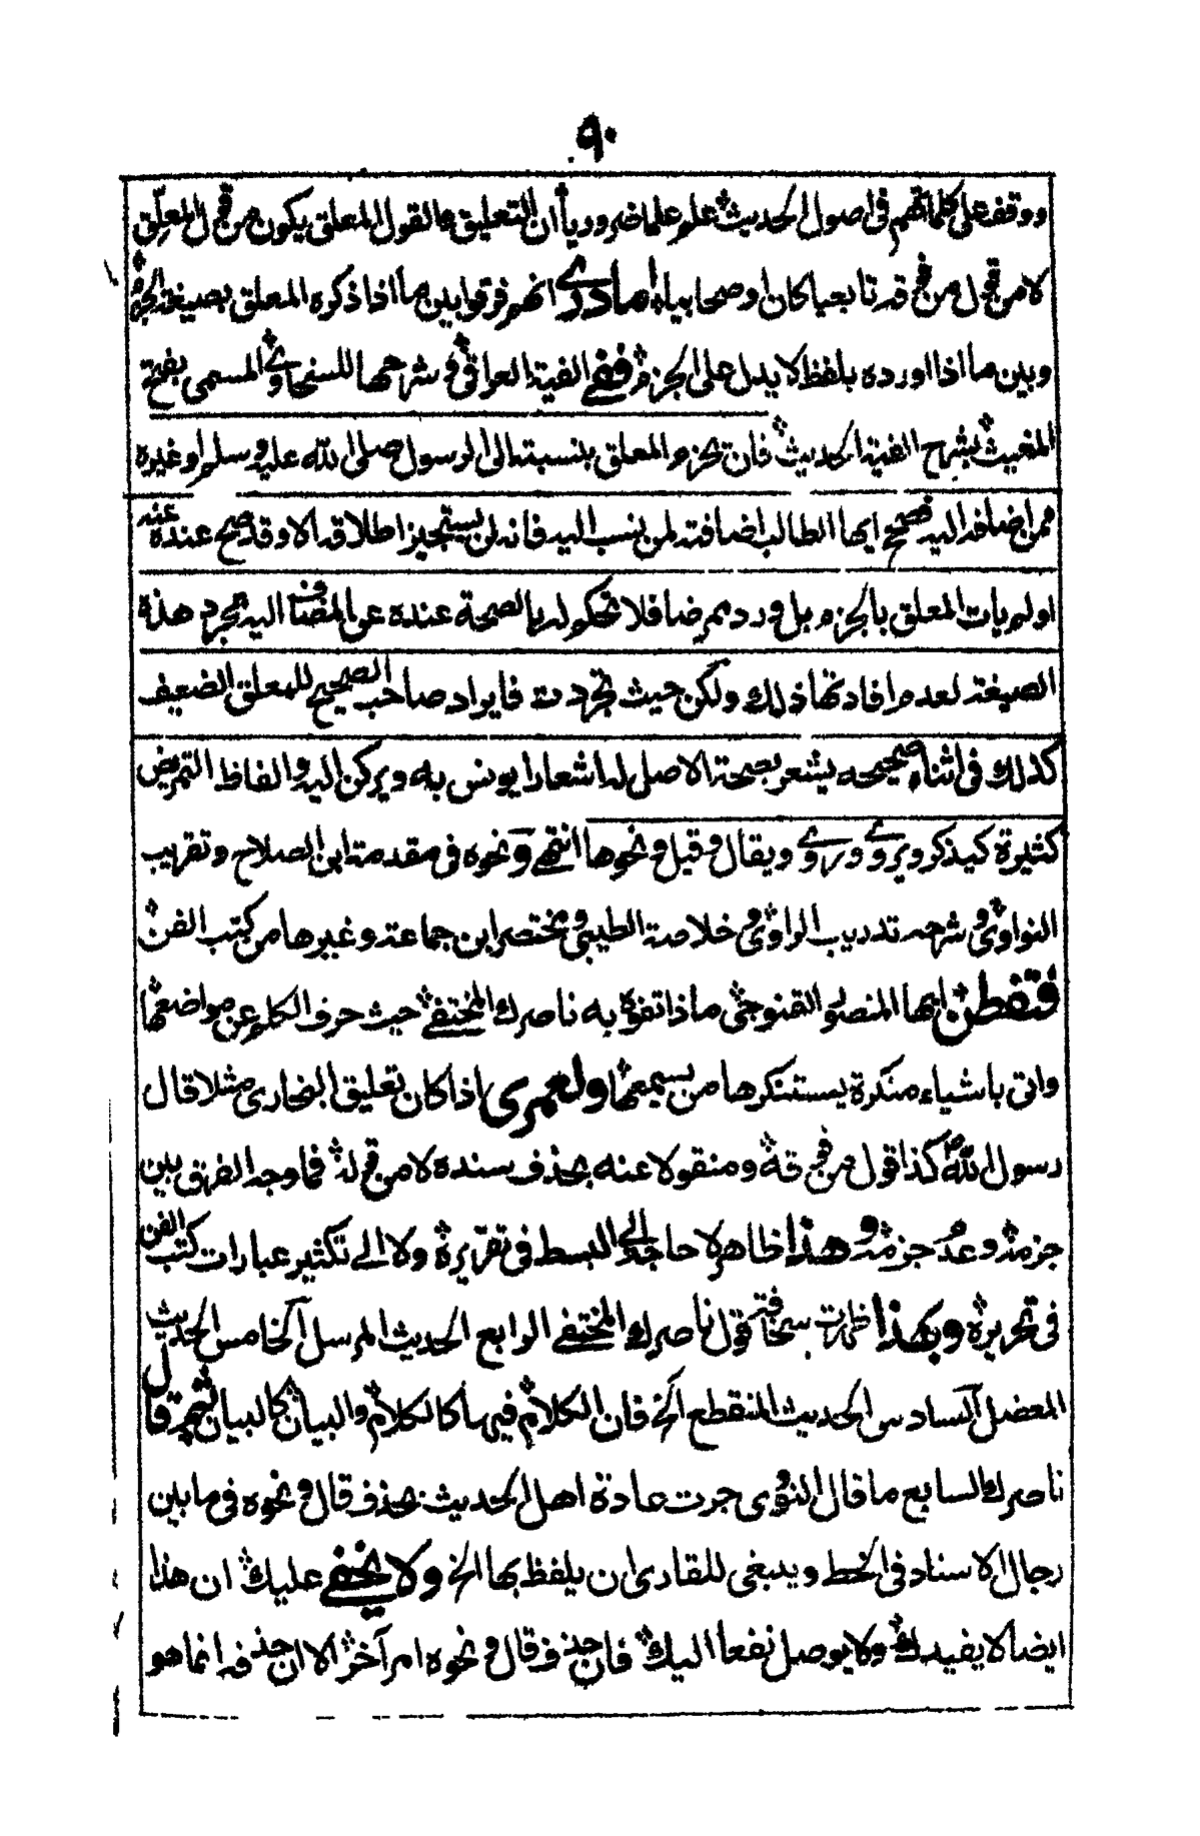 ٩٠
ووقف على كلماتهم في اصول الحديث علم علما ضروريا أن التعليق مالقول المعلق يكون من قول المعلق
لا من قول من فوقه تابعيا كان او صحابيا اما درى انهم فرقوا بين ما اذا ذكره المعلق بصيغة الجزم
وبين ما اذا اورده بلفظ لا يدل على الجزم ففي الفية العراقى وشرحها للسخاوى المسمى بفتح
المغيث بشرح الفية الحديث فان تجزم المعلق بنسبته الى الرسول صلى الله عليه وسلم او غيره
ممن اضافه اليه فصحح ايها الطالب اضافته لمن نسب اليه فانه لن يستجيز اطلاقه الا وقد صح عنده عنه
او لم يات المعلق بالجزم بل ورد ممرضا فلا تحكم له بالصحة عنده عن المضاف اليه بمجرد هذه
الصيغة لعدم افادتها ذلك ولكن حيث تجردت فايراد صاحب الصحيح للمعلق الضعيف
كذلك في اثناء صحيحه يشعر بصحة الاصل له اشعارا يونس به ويركن اليه والفاظ التمريض
كثيرة كيذكر ويروى وروى ويقال وقيل ونحوها انتهى ونحوه في مقدمة ابن الصلاح وتقريب
النواوى وشرحه تدريب الراوى وخلاصة الطيبى ومختصر ابن جماعة وغيرها من كتب الفن
فتفطن ايها المنصور القنوجى ماذا تفوه به ناصرك المختفى حيث حرف الكلم عن مواضعها
واتى باشياء منكرة يستنكرها من يسمعها ولعمرى اذا كان تعليق البخارى مثلا قال
رسول الله كذا قول من فوقه ومنقولا عنه بحذف سنده لا من قوله فما وجه الفرق بين
جزمه وعدم جزمه وهذا ظاهر لا حاجة الى البسط في تقريره ولا الى تكثير عبارات كتب الفن
في تحريره وبهذا ظهرت سخافة قول ناصرك المختفى الرابع الحديث المرسل الخامس الحديث
المعضل السادس الحديث المنقطع الخ فان الكلام فيها كالكلام والبيان كالبيان ثم قال
ناصرك السابع ما قال النووى جرت عادة اهل الحديث بحذف قال ونحوه في ما بين
رجال الاسناد في الخط وينبغى للقارى ان يلفظ بها الخ ولا يخفى عليك ان هذا
ايضا لا يفيدك ولا يوصل نفعا اليك فان حذف قال ونحوه امر آخر الا ان حذفه انما هو